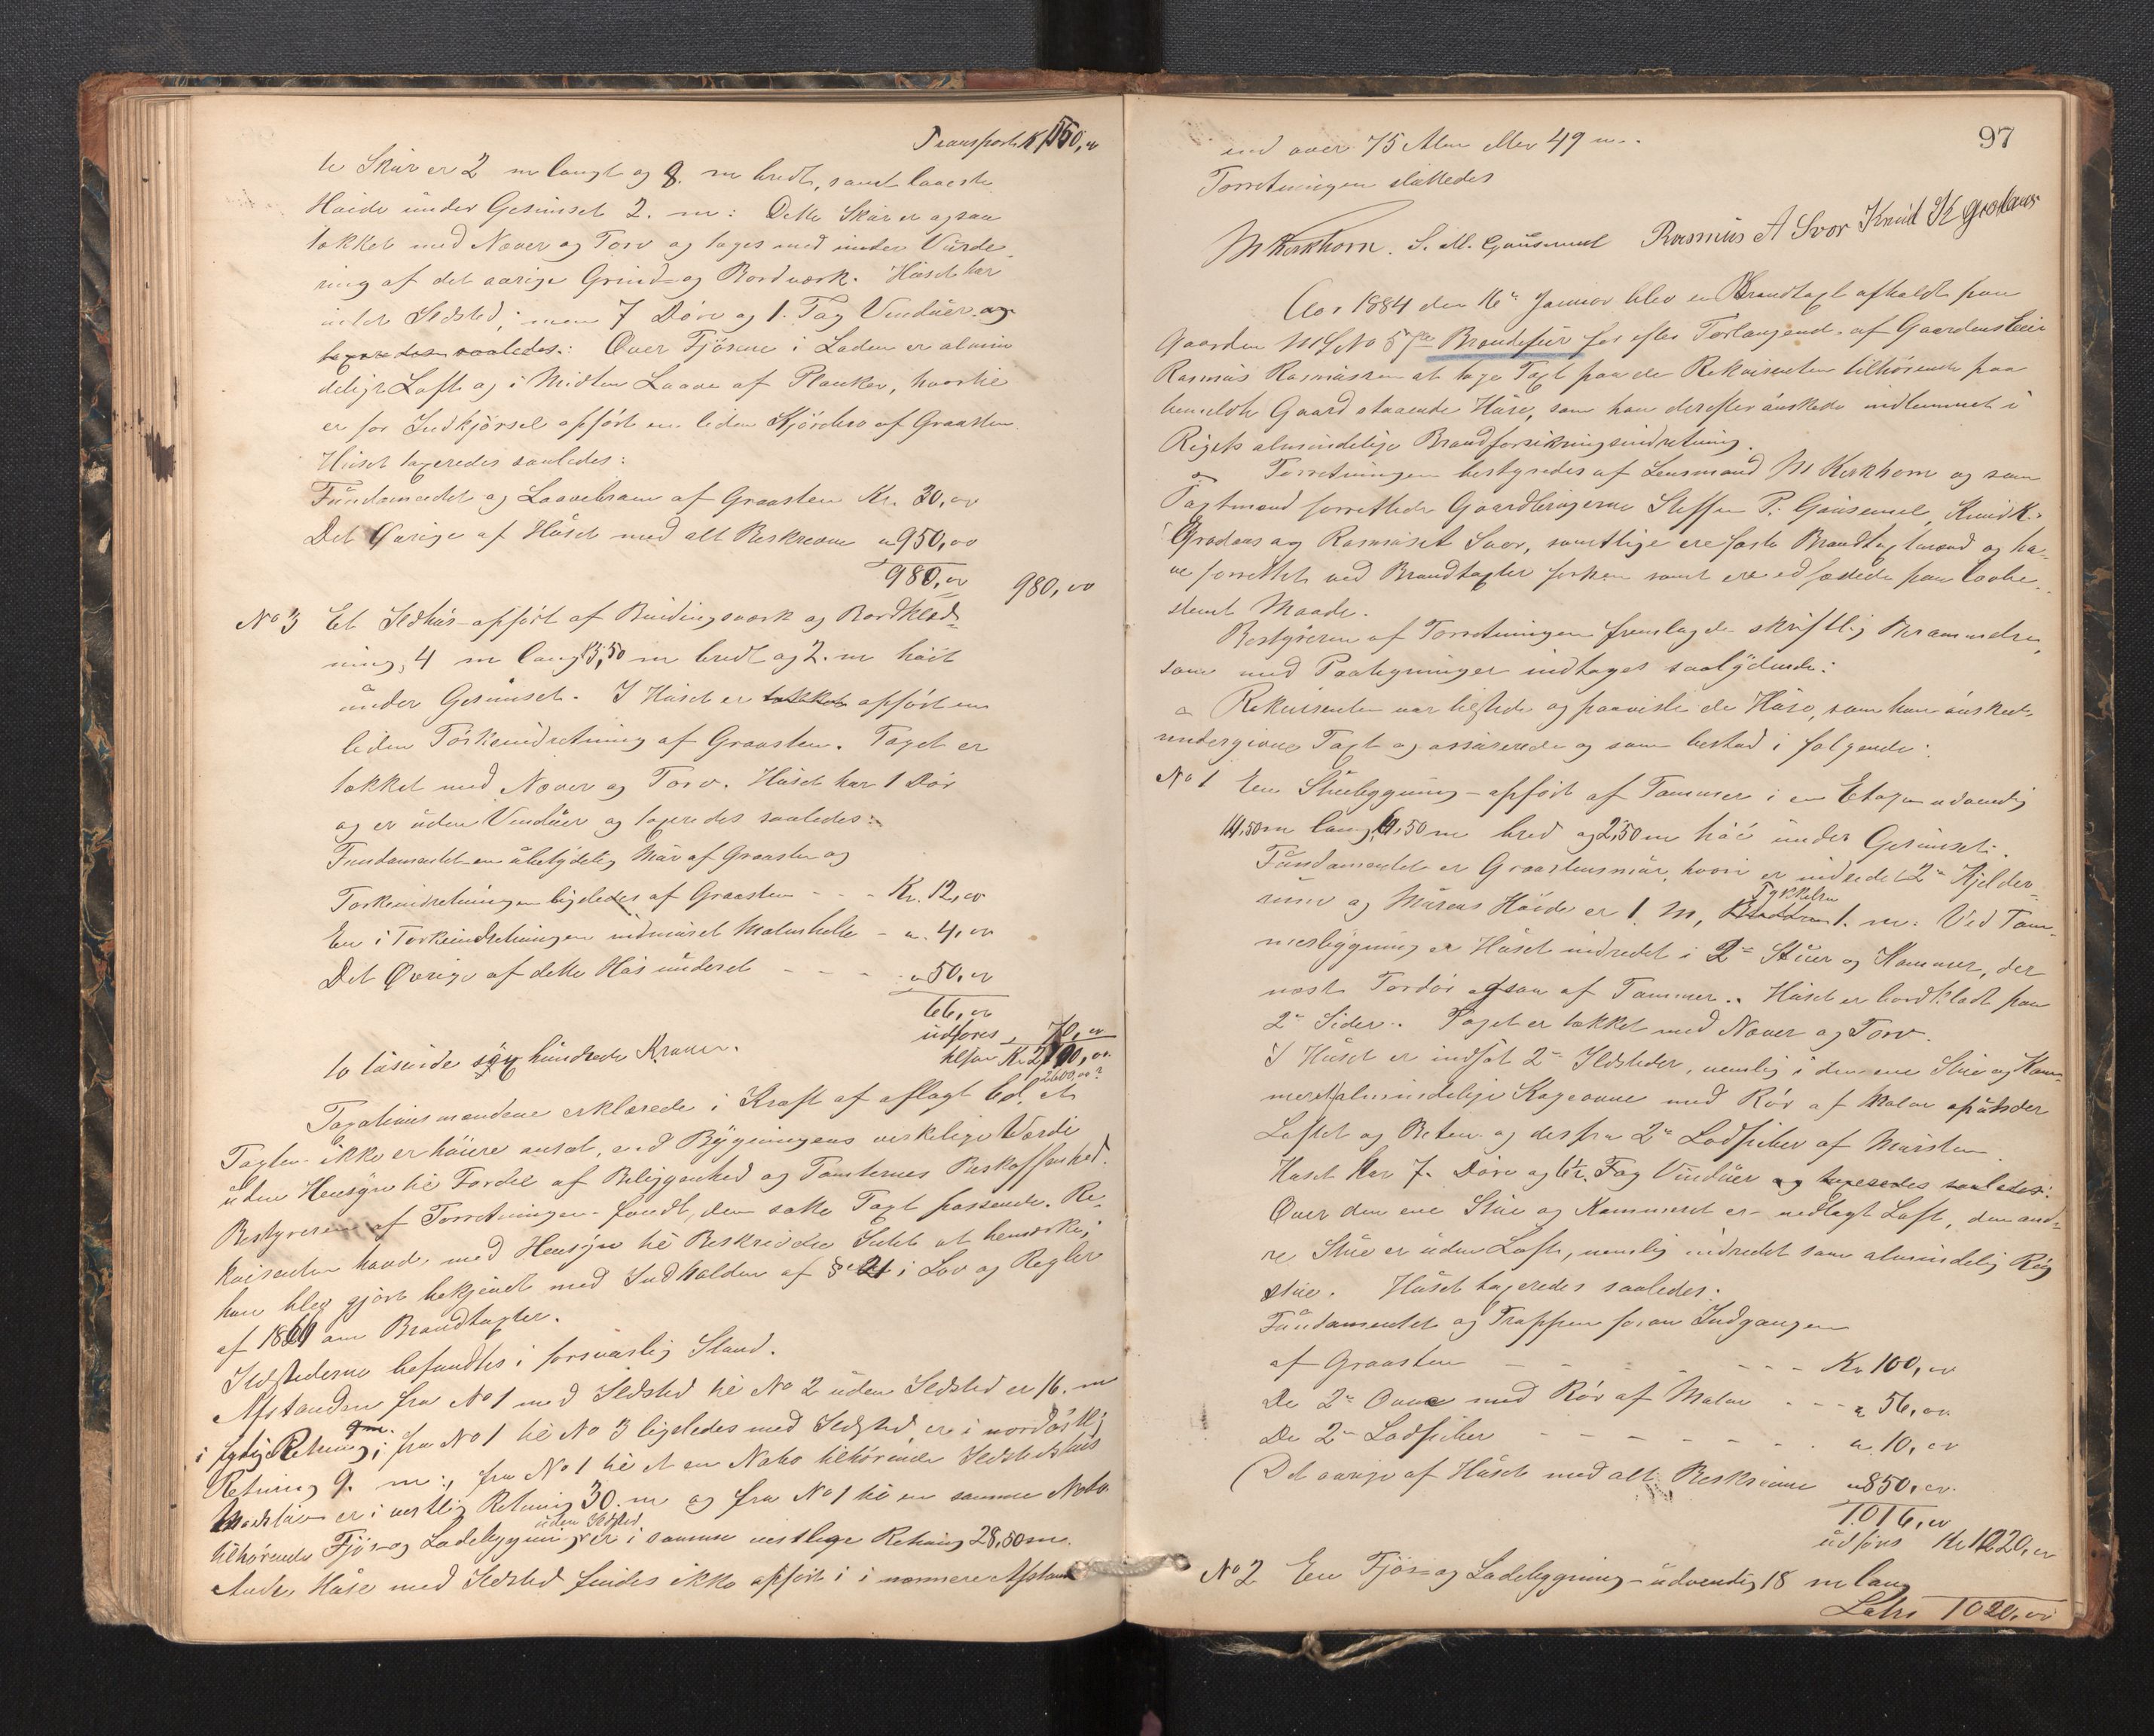 Transport Kr 1150,00
te Skur er 2 m langt og 8. m bredt, samt laveste
Høide under Gesimset 2. m: Dette Skur er ogsaa
tækket med Næver og Torv og tages med under Vurde-
ring af det øvrige Grind- og Bordværk. Huset har
intet Ildsted; men 7 Døre og 1. Fag Vinduer og
taxeredes saaledes.: Over Fjøsene i Laden er almin
delige Loft og i Midten Laave af Planker, hvortil
er for Indkjørsel opført en liden Kjørebro af Graasten.
Huset taxeredes saaledes:
Fundamentet og Laavebroen af Graasten Kr. 30,00
Det Øvrige af Huset med alt Beskrevne " 950,00
980,00 980,00
No 3 Et Ildhus opført af Bindingsværk og Bordklæd-
ning, 4 m langt 3,50 m bredt og 2. m høit
under Gesimset. I Huset er tækket opført en
liden Tørkeindretning af Graasten. Taget er
tækket med Næver og Torv. Huset har 1 Dør
og er uden Vinduer og taxeredes saaledes:
Fundamentet en ubetydelig Mur af Graasten og
Tørkeindretningen ligeledes af Graasten - - - Kr. 12,00
En i Tørkeindretningen indmuret Malmhelle - " 4,00
Det Øvrige af dette Hus vurderet - - - " 50,00
66,00
udføres " 70,00
tilsam Kr 2100,00
2600,00?
to tusinde sex hundrede Kroner.
Taxationsmændene erklærede i Kraft af aflagt Ed, at
Taxten ikke er høiere ansat, end Bygningens virkelige Værdi
uden Hensyn til Fordel af Beliggenhed og Tomternes Beskaffenhed.
Bestyreren af Forretningen fandt, den satte Taxt passende. Re-
kvirenten havde med Hensyn til Beskrivelse Intet at bemærke;
han blev gjort bekjendt med Indholden af § 21 i Lov og Regler
af 18 om Brandtaxter.
Ildstederne befandtes i forsvarlig Stand.
Afstanden fra No 1 med Ildsted til No 2 uden Ildsted er 16. m
i sydlig Retning; fra No 1 til No 3 ligeledes med Ildsted, er i nordøstlig
Retning 9. m:, fra No 1 til et en Nabo tilhørende Ildstedshus
er i vestlig Retning 30. m og fra No 1 til en samme Nabo
uden Ildsted
tilhørende Fjøs- og Ladebygning er i samme vestlige Retning 28,50 m.
Andre Huse med Ildsted findes ikke opført i i nærmere Afstand
97
end over 75 Alen eller 49 m..
Forretningen sluttedes
M Kirkhorn. S. M. Gausemel Rasmus A Svor Knud K Grodaas
Aar 1884 den 16de Januar blev en Brandtaxt afholdt paa
Gaarden M L No 57 Brandesur for efter Forlangende af Gaardens Eier
Rasmus Rasmussen at tage Taxt paa de Rekvirenten tilhørende paa
bemeldte Gaard staaende Huse, som han derefter ønskede indlemmet i
Rigets almindelige Brandforsikringsindretning.
Forretningen bestyredes af Lensmand M Kirkhorn og som
Taxtmænd forrettede Gaardbrugerne Steffen P. Gausemel, Knud K.
Grodaas og Rasmus A Svor, samtlige ere faste Brandtaxtmænd og ha-
ve forrettet ved Brandtaxter forhen samt ere edfæstede paa lovbe-
stemt Maade.
Bestyreren af Forretningen fremlagde skriftlig Berammelse,
som med Paategninger indtages saalydende:
Rekvirenten var tilstede og paaviste de Huse, som han ønskede
undergivne Taxt og assurerede og som bestod i følgende:
No 1 En Stuebygning - opført af Tømmer i en Etage udvendig
14,50 m lang, 6,50 m bred og 2,50 m høi under Gesimset.
Fundamentet er Graastensmur, hvori er indredet 2de Kjelder-
Tykkelsen
rum og Murens Høide er 1. m, Bredden 1. m. Ved Tøm-
mesbygning er Huset indredet i 2de Stuer og Kammer, der
næst Fordør ogsaa af Tømmer. Huset er bordklædt paa
2de Sider. Taget er tækket med Næver og Torv.
I Huset er indsat 2de Ildsteder, nemlig i den ene Stue og Kam-
meret almindelige Kogeovne med Rør af Malm op under
Loftet og Røsten og derfra 2de Lodpiber af Mursten.
Huset har 7. Døre og 6½. Fag Vinduer og taxeredes saaledes:
Over den ene Stue og Kammeret er nedlagt Loft, den and-
re Stue er uden Loft, nemlig indredet som almindelig Røg
stue. Huset taxeredes saaledes:
Fundamentet og Trappen foran Indgangen
af Graasten - - - - - - - Kr 100,00
De 2de Ovne med Rør af Malm - - - " 56,00
De 2de Lodpiber - - - - - - - " 10,00
Det øvrige af Huset med alt Beskrevne " 850,00
1016,00
udføres Kr 1020,00
No 2 En Fjøs- og Ladebygning - udvendig 18 m lang
Latus 1020,00